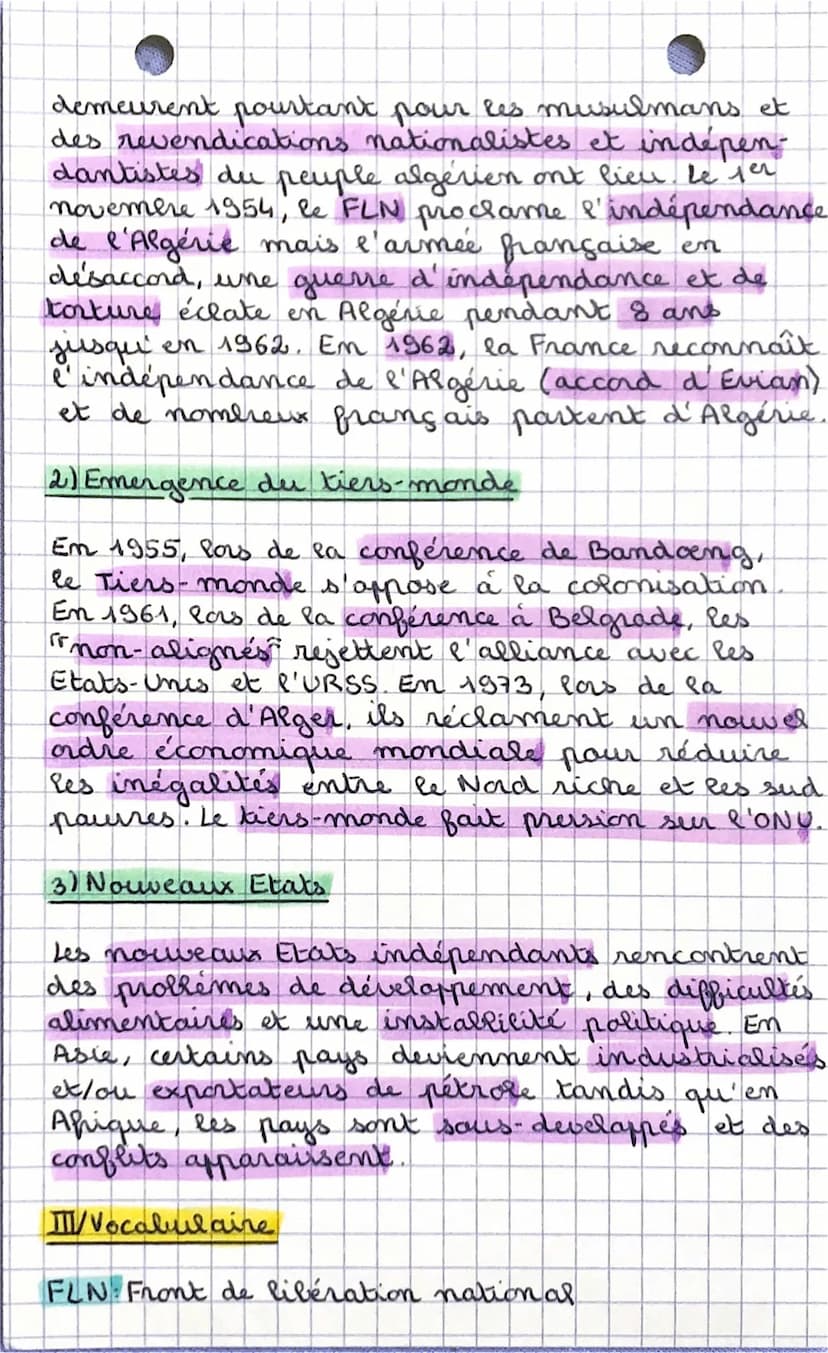 demeurent pourtant pour les musulmans et
des revendications nationalistes et indépen-
dantistes du peuple algérien ont lieu. Le 1er
novembre 1954, le FLN proclame l'indépendance
de l'Algérie mais l'armée française en
désaccord, une guerre d'indépendance et de
torture éclate en Algérie pendant 8 ans
jusqu'en 1962. En 1962, la France reconnaît
l'indépendance de l'Algérie (accord d'Evian)
et de nombreux français partent d'Algérie.
2) Emergence du tiers-monde
En 1955, lors de la conférence de Bandoeng,
le Tiers-monde s'oppose à la colonisation.
En 1961, lors de la conférence à Belgrade, les
"non-alignés" rejettent l'alliance avec les
Etats-Unis et l'URSS. En 1973, lors de la
conférence d'Alger, ils réclament un nouvel
ordre économique mondiale pour réduire
les inégalités entre le Nord riche et les sud
pauvres. Le tiers-monde fait pression sur l'ONU.
3) Nouveaux Etats
Les nouveaux Etats indépendants rencontrent
des problèmes de développement, des difficultés
alimentaires et une instabilité politique. En
Asie, certains pays deviennent industrialisés
et/ou exportateurs de pétrole tandis qu'en
Afrique, les pays sont sous-developpés et des
conflits apparaissent.
III/ Vocabulaire
FLN: Front de libération national